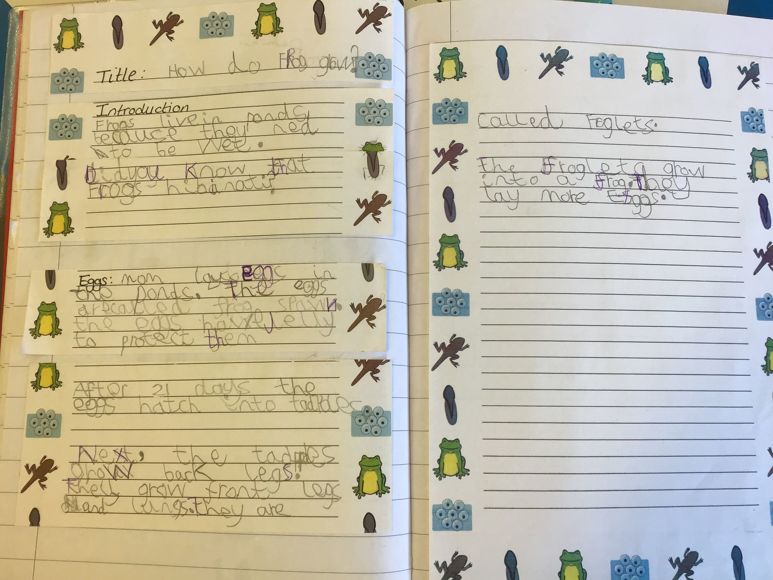 Title: How do Frog grow?
Introduction
Frons live in ponds
because they ned
to be wet.
Did you know that
Frogs hibanati
Eggs: mom lays eggs in
the ponds. The eggs
are called frog spawn.
the eggs have Jelly
to protect them
After 21 days the
eggs hatch into
Next, the tadples
Grow back legs.
They grow front legs
and lungs. they are
called Foglets.
The Froglets grow
into a Frog. They
lay more Eggs.